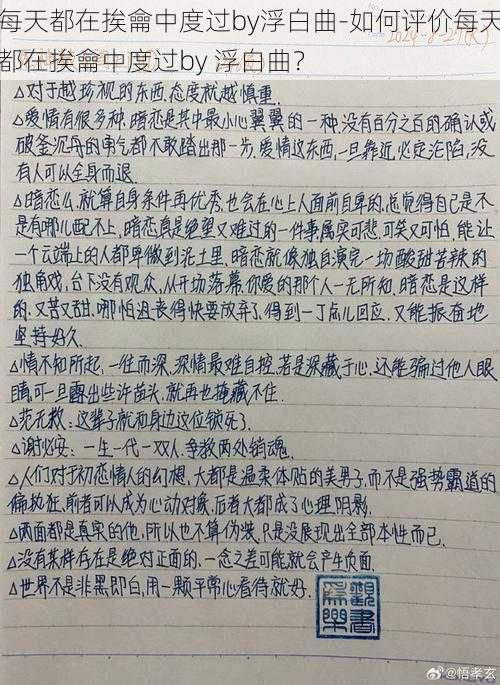 每天都在挨龠中度过by浮白曲-如何评价每天
都在挨龠中度过by 浮白曲?
2024-8-27
△对于越珍视的东西,态度就越慎重.
△爱情有很多种,暗恋是其中最小心翼翼的一种,没有百分之百的确认或
破釜沉舟的勇气都不敢踏出那一步,爱情这东西,一旦靠近必定沦陷,没
有人可以全身而退.
△暗恋么,就算自身条件再优秀,也会在心上人面前自卑的,总觉得自己是不
是有哪儿配不上,暗恋真是绝望又难过的一件事,属实可悲,可笑又可怕,能让
一个云端上的人都卑微到泥土里,暗恋就像独自演完一场酸甜苦辣的
独角戏,台下没有观众,从开场落幕你爱的那个人一无所知,暗恋是这样
的,又苦又甜,哪怕沮丧得快要放弃了,得到一丁点儿回应,又能振奋地
坚持好久.
△情不知所起,一往而深,深情最难自控,若是深藏于心,还能骗过他人眼
睛,可一旦露出些许苗头,就再也掩藏不住.
△范无救:这辈子就和身边这位锁死了.
△谢必安:一生一代一双人,争教两处销魂.
△人们对于初恋情人的幻想,大都是温柔体贴的美男子,而不是强势霸道的
偏执狂,前者可以成为心动对象,后者大都成了心理阴影.
△两面都是真实的他,所以也不算伪装,只是没展现出全部本性而已.
△没有某样存在是绝对正面的,一念之差可能就会产生负面.
△世界不是非黑即白,用一颗平常心看待就好.
觀書為樂
@悟孝玄